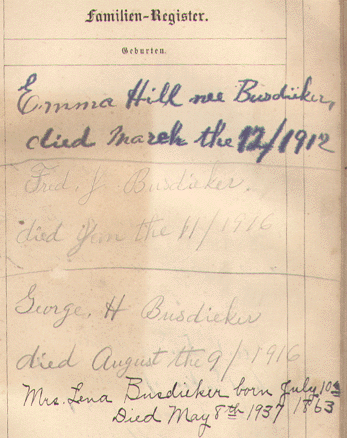 Familien-Register.
Geburten.
Emma Hill nee Busdieker,
died March the 12/1912
Fred. J. Busdieker.
died Jan the 11/1916
George, H Busdieker
died August the 9/1916
Mrs. Lena Busdieker born July 10th
Died May 8th 1937 1863